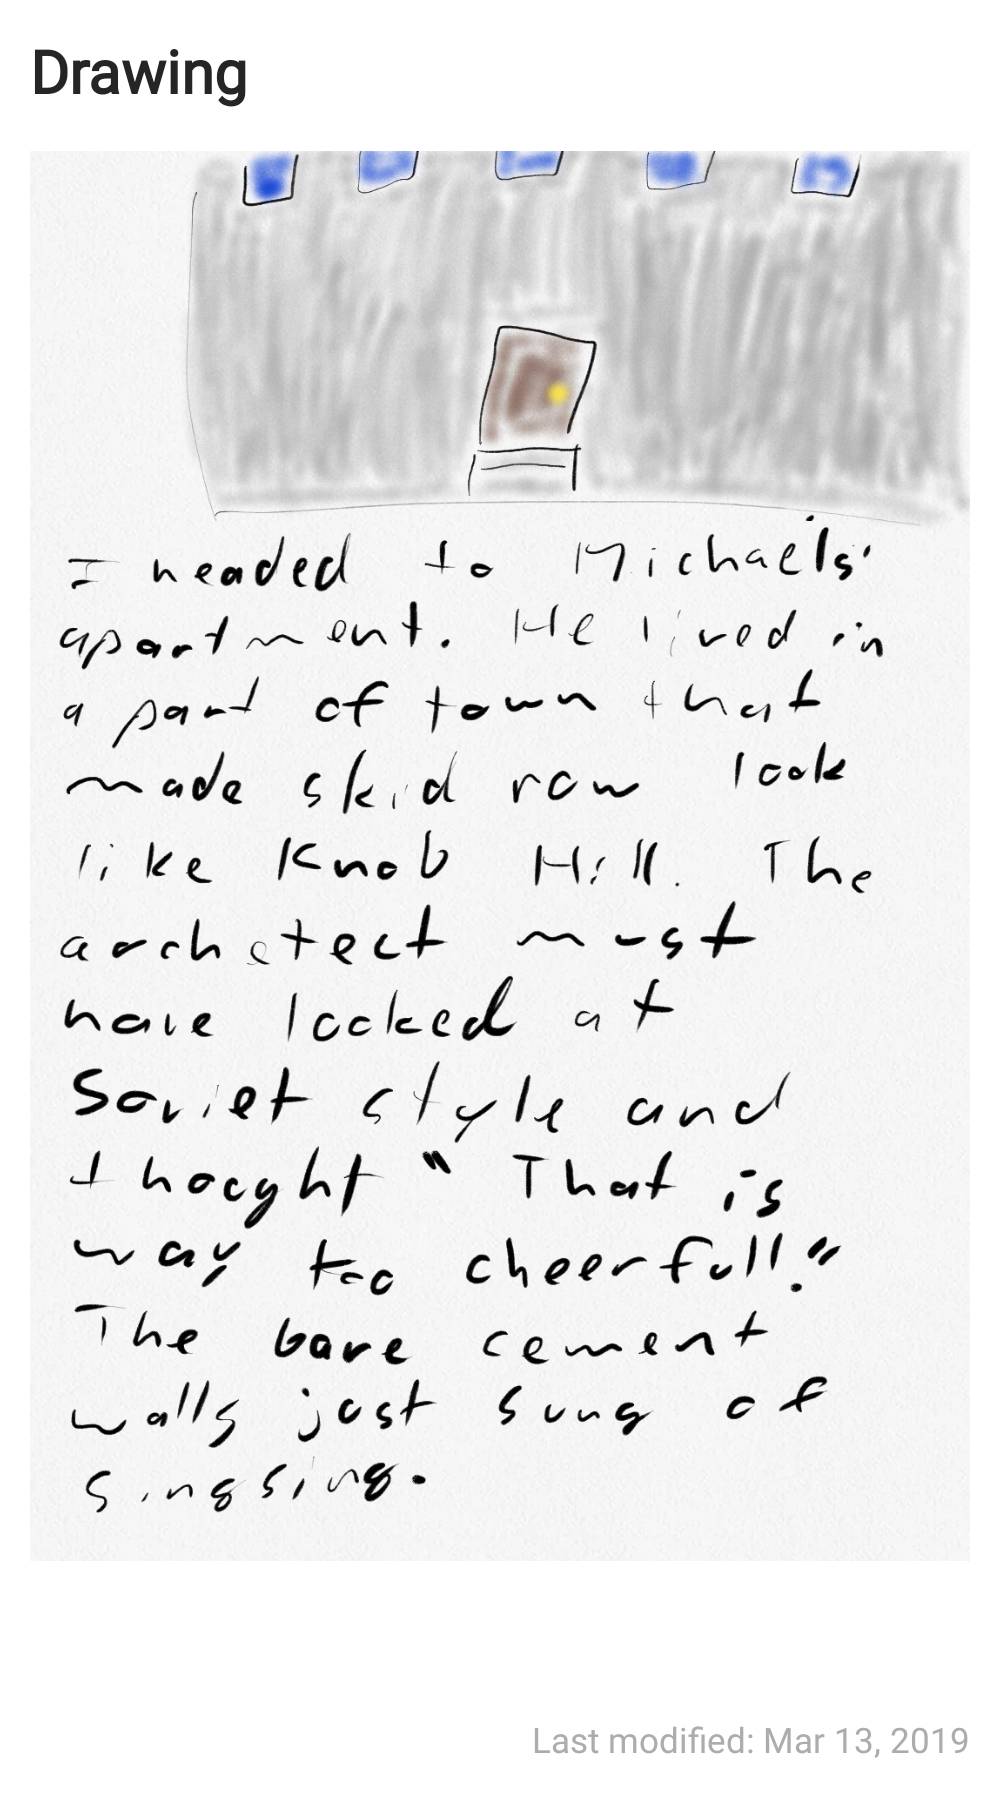 Drawing
I headed to Michaels'
apartment. He lived in
a part of town that
made skid row look
like Knob Hill. The
archetect must
have looked at
Soviet style and
thought "That is
way too cheerfull."
The bare cement
walls just sung of
singsing.
Last modified: Mar 13, 2019